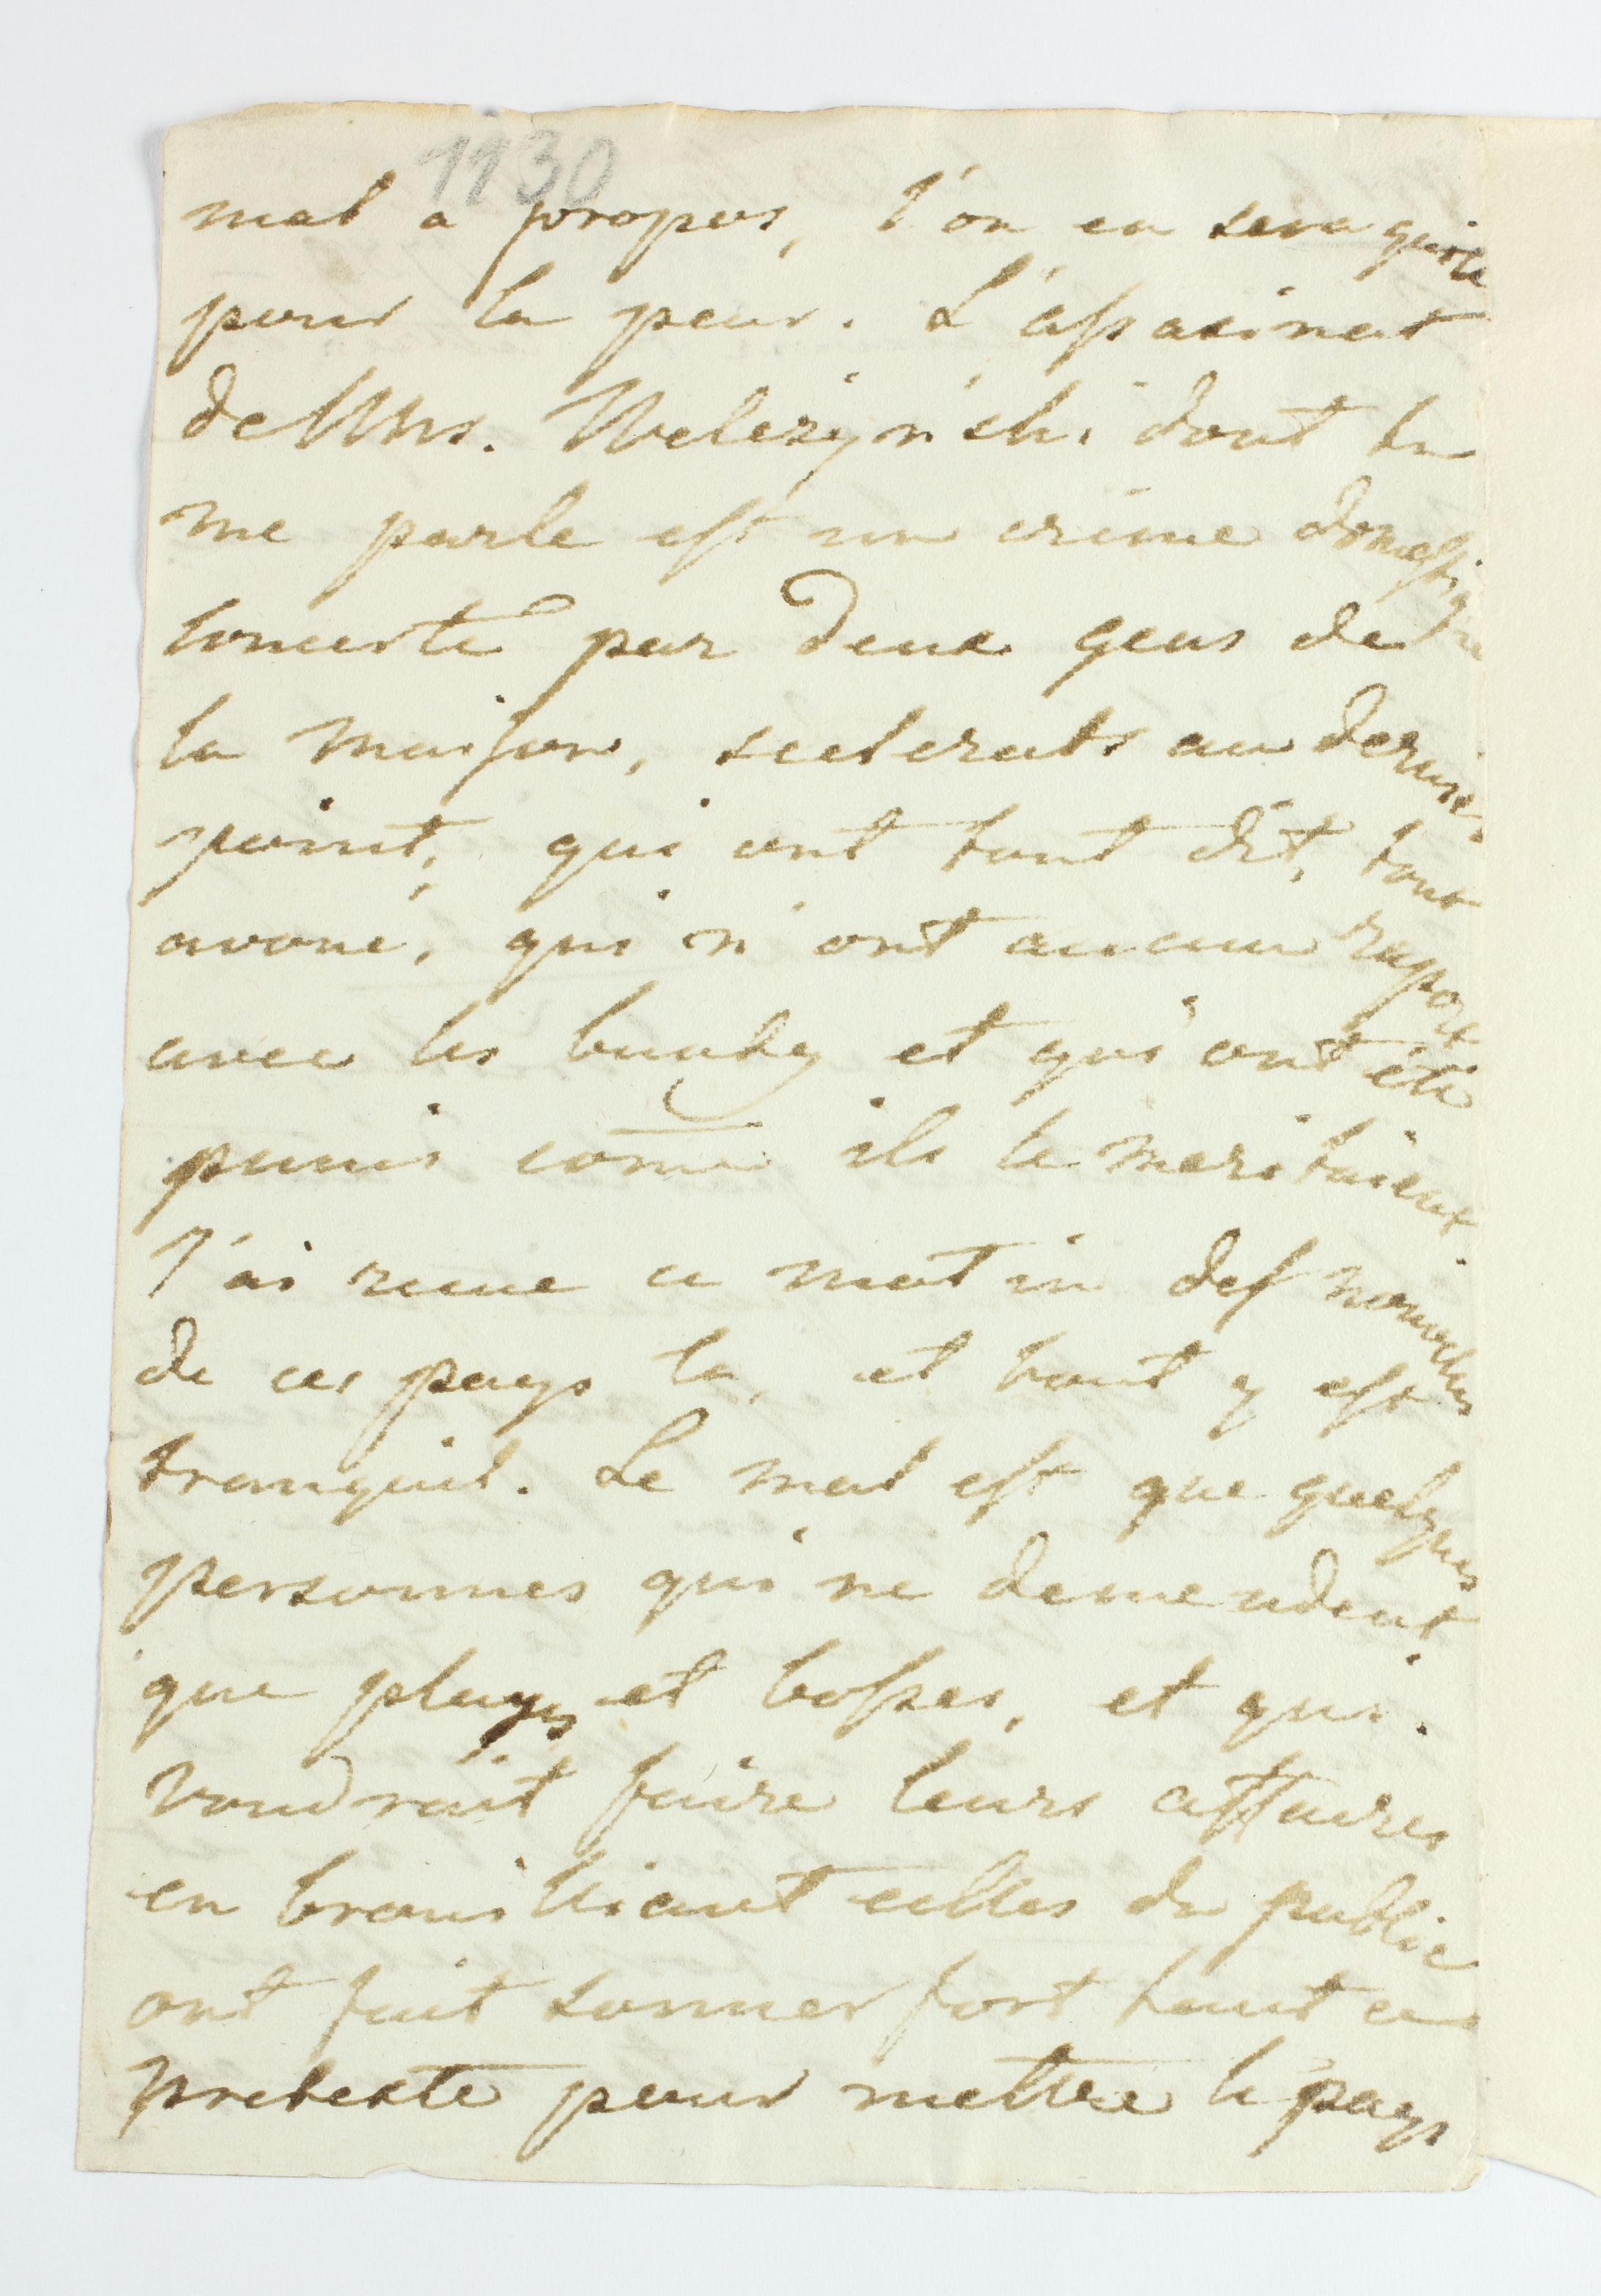 1130
mal a propos, l'on en sera quite
pour la peur. L'assasinat
de Mrs. Welezynski dont tu
me parle est un crime domestique
concerté par deux gens de
la maison, scelerats au dernier
point, qui ont tout dit, tout
avoué, qui n'ont aucun raport
avec les bunty et qui ont été
punis come ils le meritaient.
J'ai recue ce matin des nouvelles
de ces pays la, et tout y est
tranquil. Le mal est que quelques
personnes qui ne demendent
que playes et bosses, et qui
voudrait faire leurs affaires
en brouilliant celles du public
ont fait sonner fort haut ce
pretexte pour mettre le pays